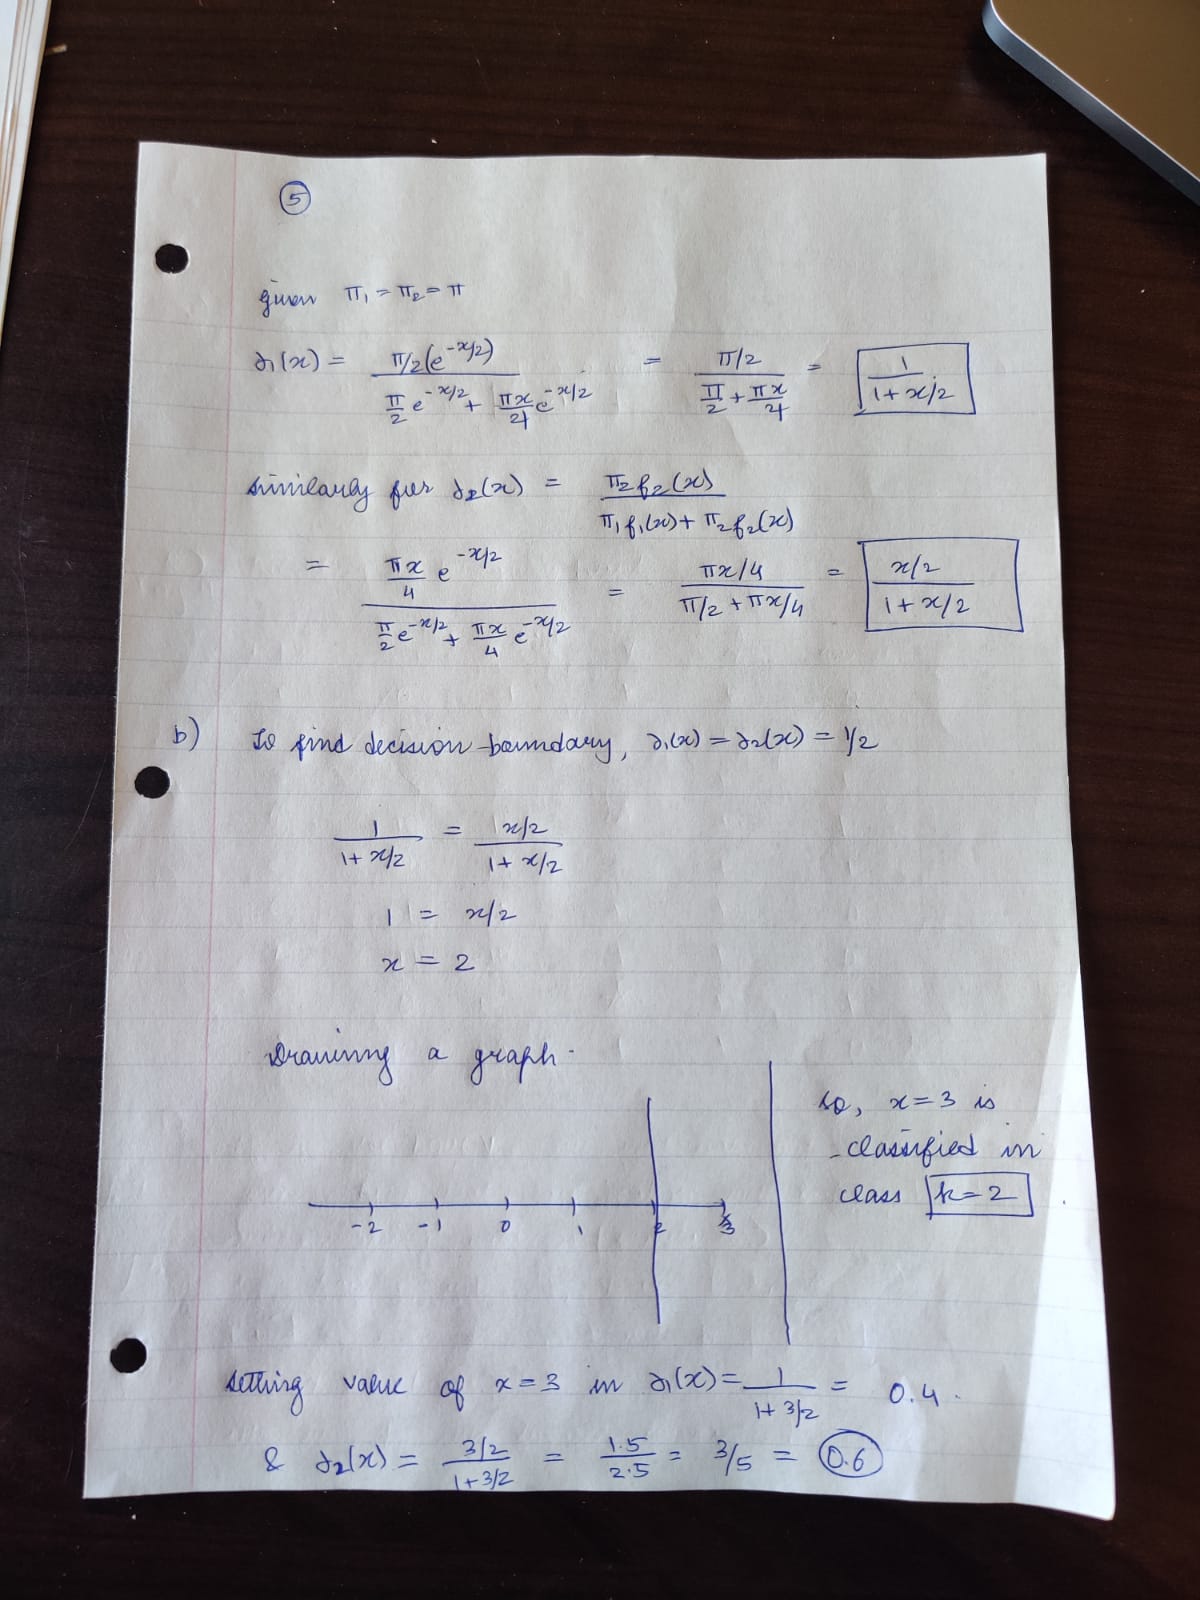 5
given π₁ = π₂ = π
δ₁(x) = π/2(e^(-x/2)) / (π/2 e^(-x/2) + πx/4 e^(-x/2)) = (π/2) / (π/2 + πx/4) = 1 / (1 + x/2)
similarly for δ₂(x) = π₂f₂(x) / (π₁f₁(x) + π₂f₂(x))
= (πx/4 e^(-x/2)) / (π/2 e^(-x/2) + πx/4 e^(-x/2)) = (πx/4) / (π/2 + πx/4) = (x/2) / (1 + x/2)
b) To find decision boundary, δ₁(x) = δ₂(x) = 1/2
1 / (1 + x/2) = (x/2) / (1 + x/2)
1 = x/2
x = 2
Drawing a graph.
-2 -1 0 1 2 3
so, x = 3 is
classified in
class k = 2
setting value of x = 3 in δ₁(x) = 1 / (1 + 3/2) = 0.4.
& δ₂(x) = (3/2) / (1 + 3/2) = 1.5 / 2.5 = 3/5 = 0.6